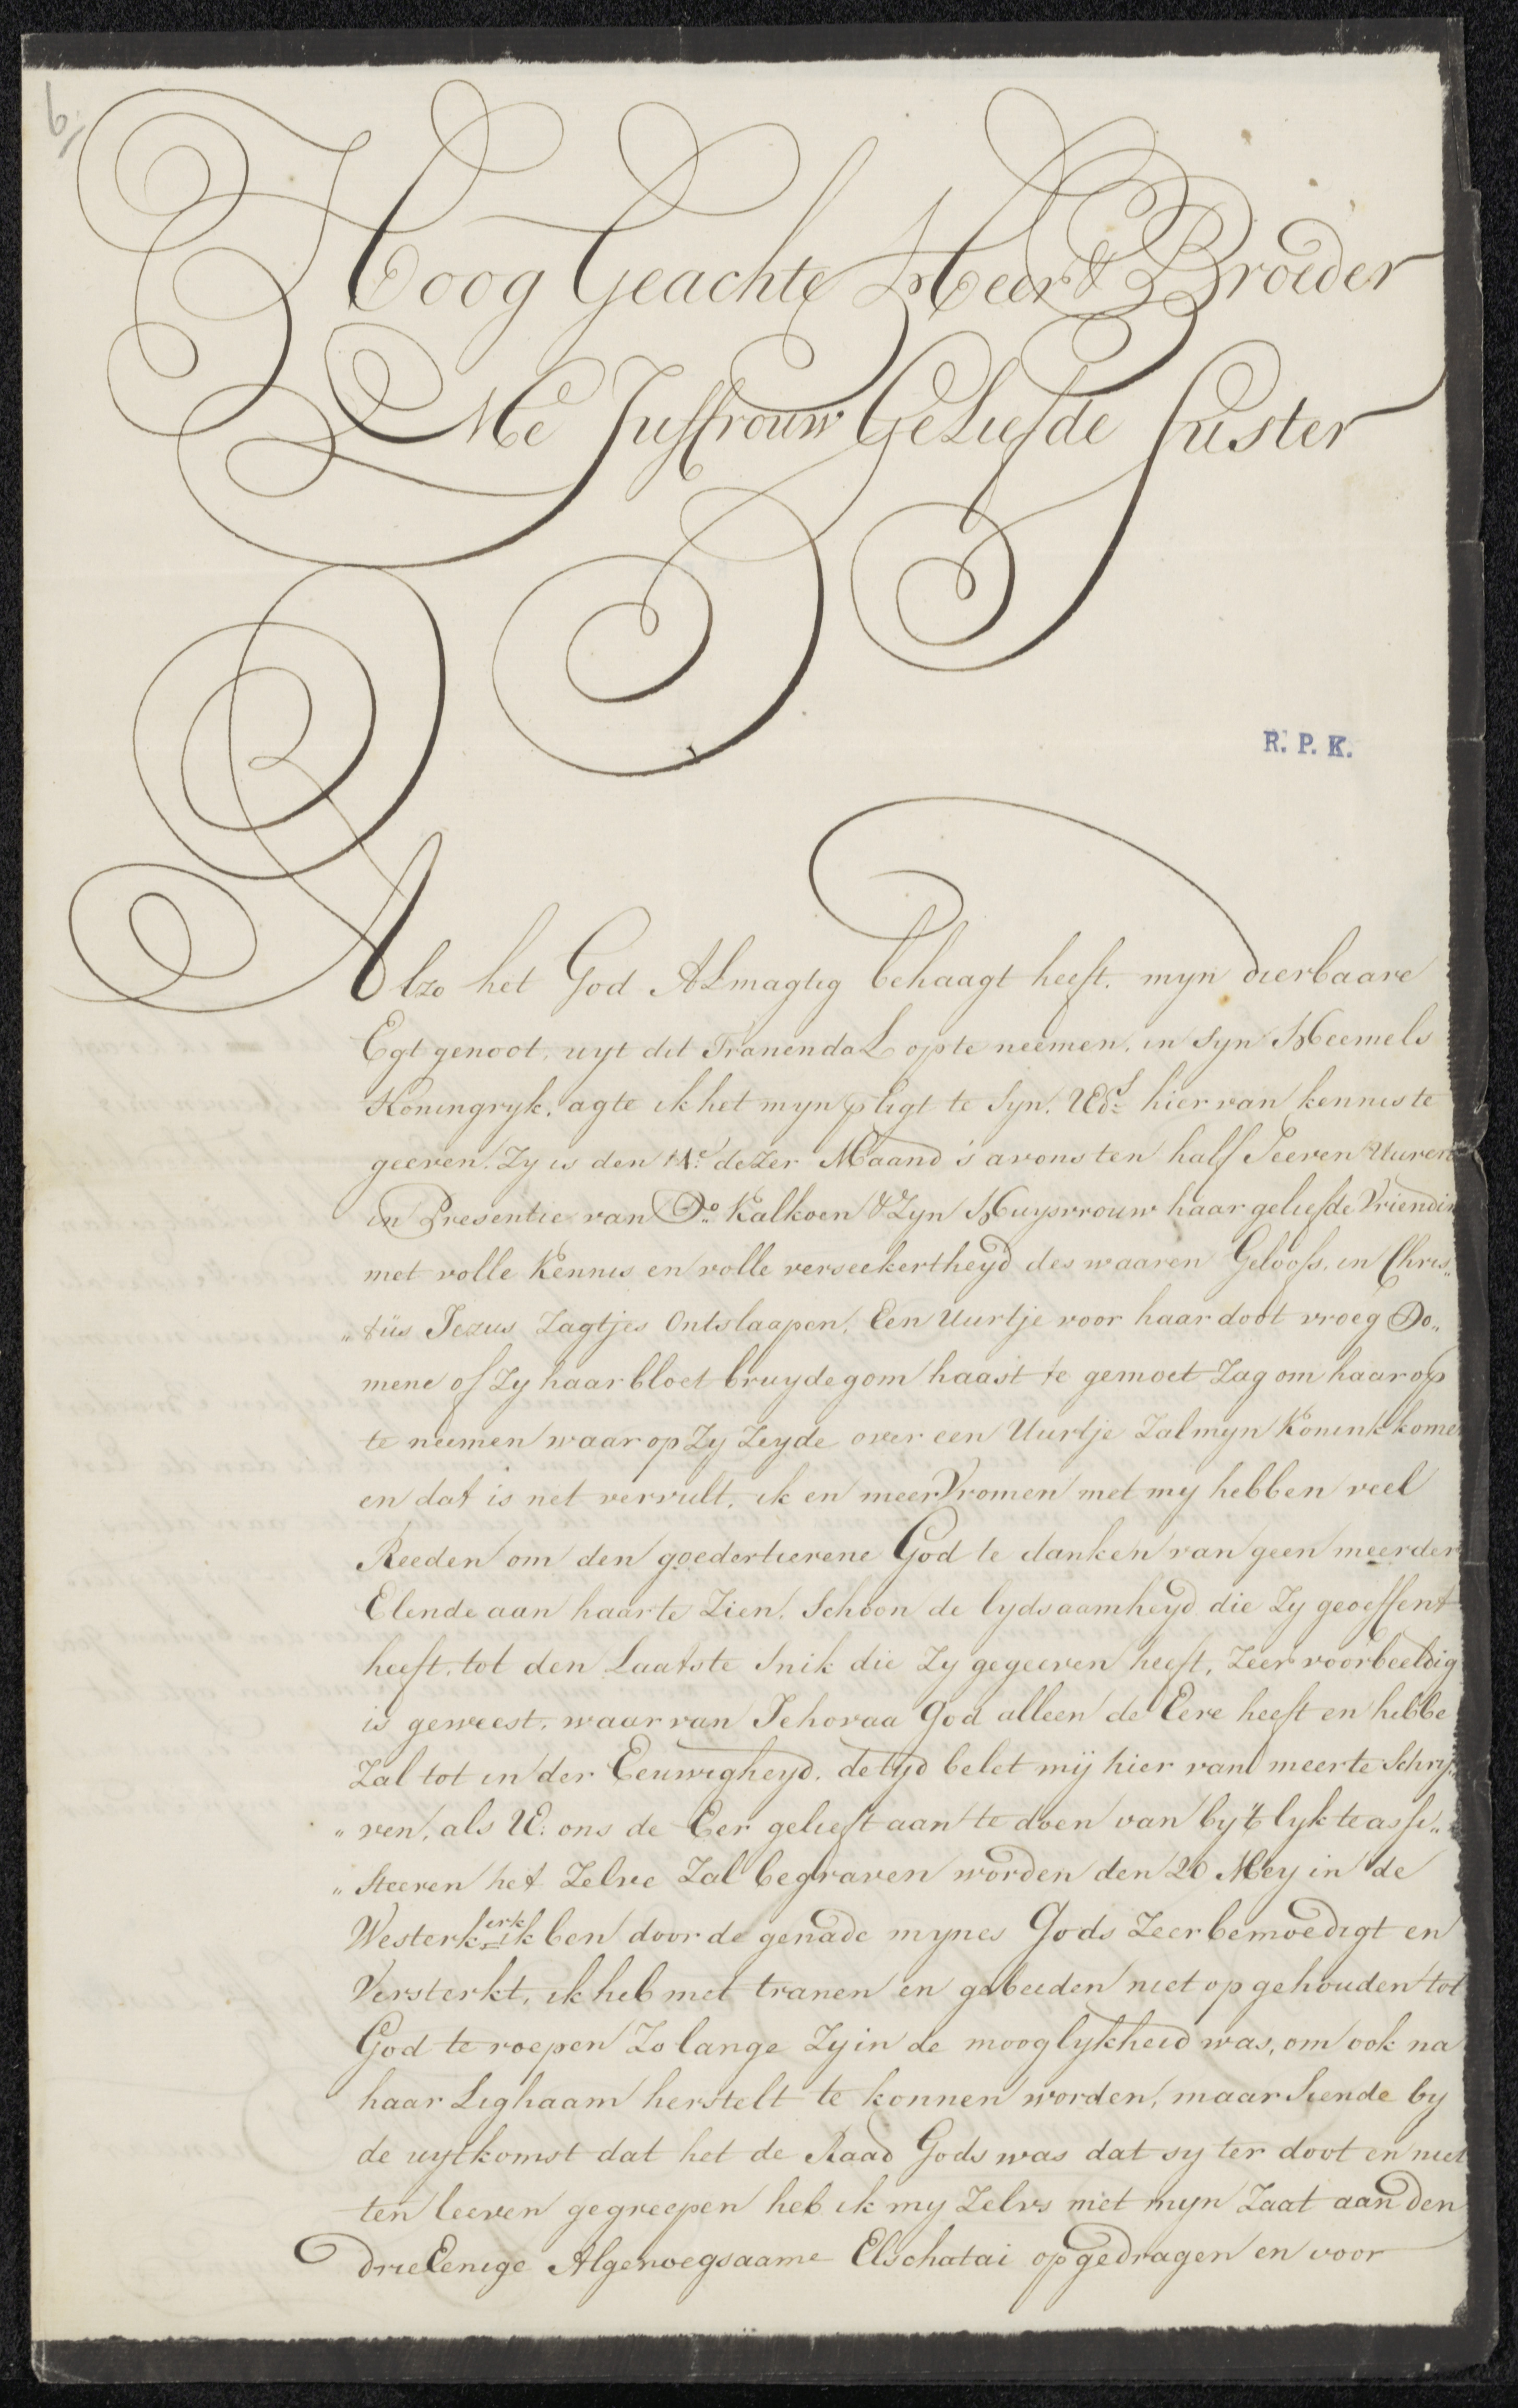 6
Hoog Geachte Heer & Broeder
Me Juffrouw Geliefde Suster
R. P. K.
Alzo het God ALmagtig behaagt heeft. myn dierbaare
Egtgenoot, uyt dit TranendaL opte neemen, in Syn Heemels
Koningryk, agte ik het myn pligt te Syn, UEds: hier van kennis te
geeven. Zy is den 14e: dezer Maand s'avons ten half Seeven Uuren
in Presentie van Do: Kalkoen & Zyn Huysvrouw haar geliefde Vriendin
met volle kennis en volle verseekertheyd des waaren Geloofs, in Chris„
„tüs Jezus Zagtjes Ontslaapen, Een Uurtje voor haar doot vroeg Do„
mene of Zy haar bloet bruydegom haast te gemoet Zag om haar op
te neemen waar op Zy Zeyde over een Uurtje Zal myn Konink komen
en dat is net vervult, ik en meer Vromen met my hebben veel
Reeden om den goedertierene God te danken van geen meerder
Elende aan haar te Zien. Schoon de lydsaamheyd die Zy geoeffent
heeft, tot den Laatste Snik die Zy gegeeven heeft, Zeer voorbeeldig
is geweest, waar van Jehovaa God alleen de Eere heeft en hebbe
Zal tot in der Eeuwigheyd. de tyd belet mij hier van meer te Schry„
„ven, als UE: ons de Eer gelieft aan te doen van by 't lyk te assi„
„steeren het Zelve Zal begraven worden den 20 Mey in de
Westerkerk ik ben door de genade mynes Gods Zeer bemoedigt en
Versterkt, ik heb met tranen en gebeeden niet op gehouden tot
God te roepen Zo lange Zy in de mooglykheid was, om ook na
haar Lighaam herstelt te konnen worden, maar Siende by
de uytkomst dat het de Raad Gods was dat sy ter doot en niet
ten leeven gegreepen heb ik my Zelvs met myn Zaat aan den
drie Eenige Algenoegsaame Elschatai opgedragen en voor